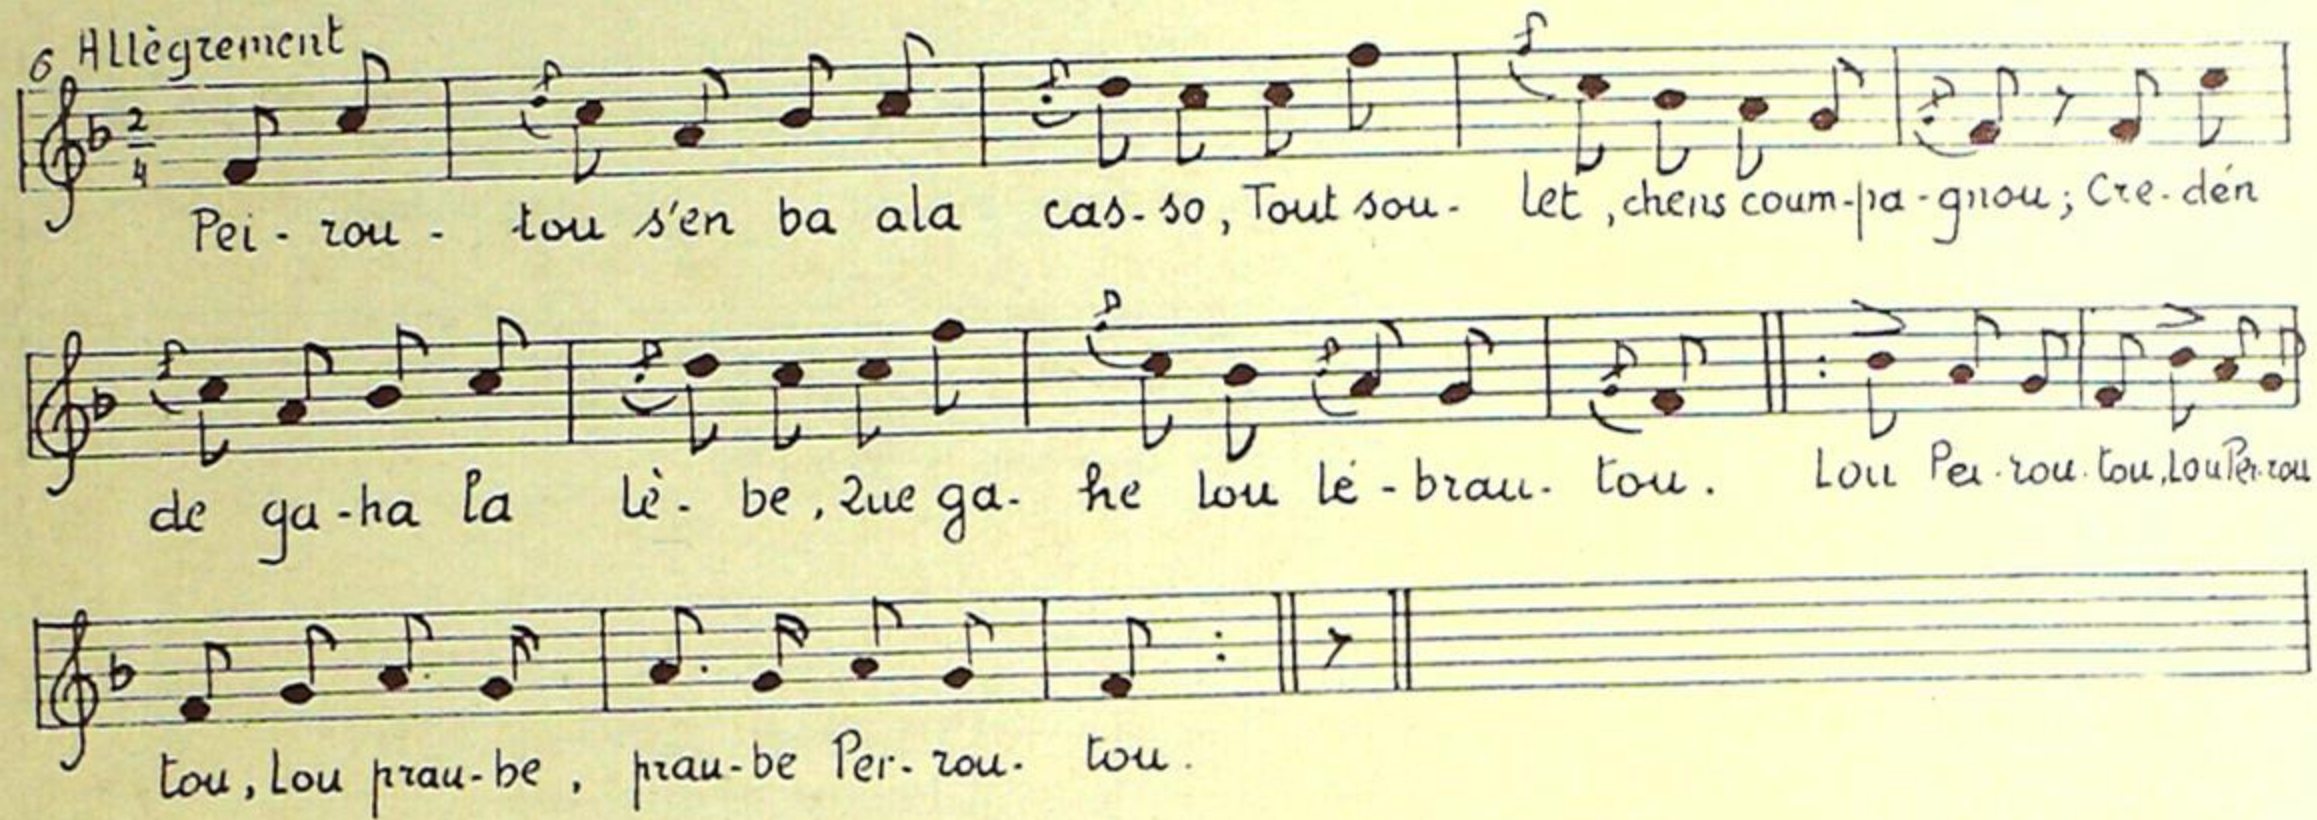 6 Allègrement
2
4
Pei - rou - tou s'en ba a la cas - so, Tout sou - let, chens coum - pa - gnou; Cre - dén
de ga - ha la lè - be, Que ga - he lou lé - brau - tou. Lou Pei - rou - tou, Lou Per - rou
tou, Lou prau - be, prau - be Per - rou - tou.